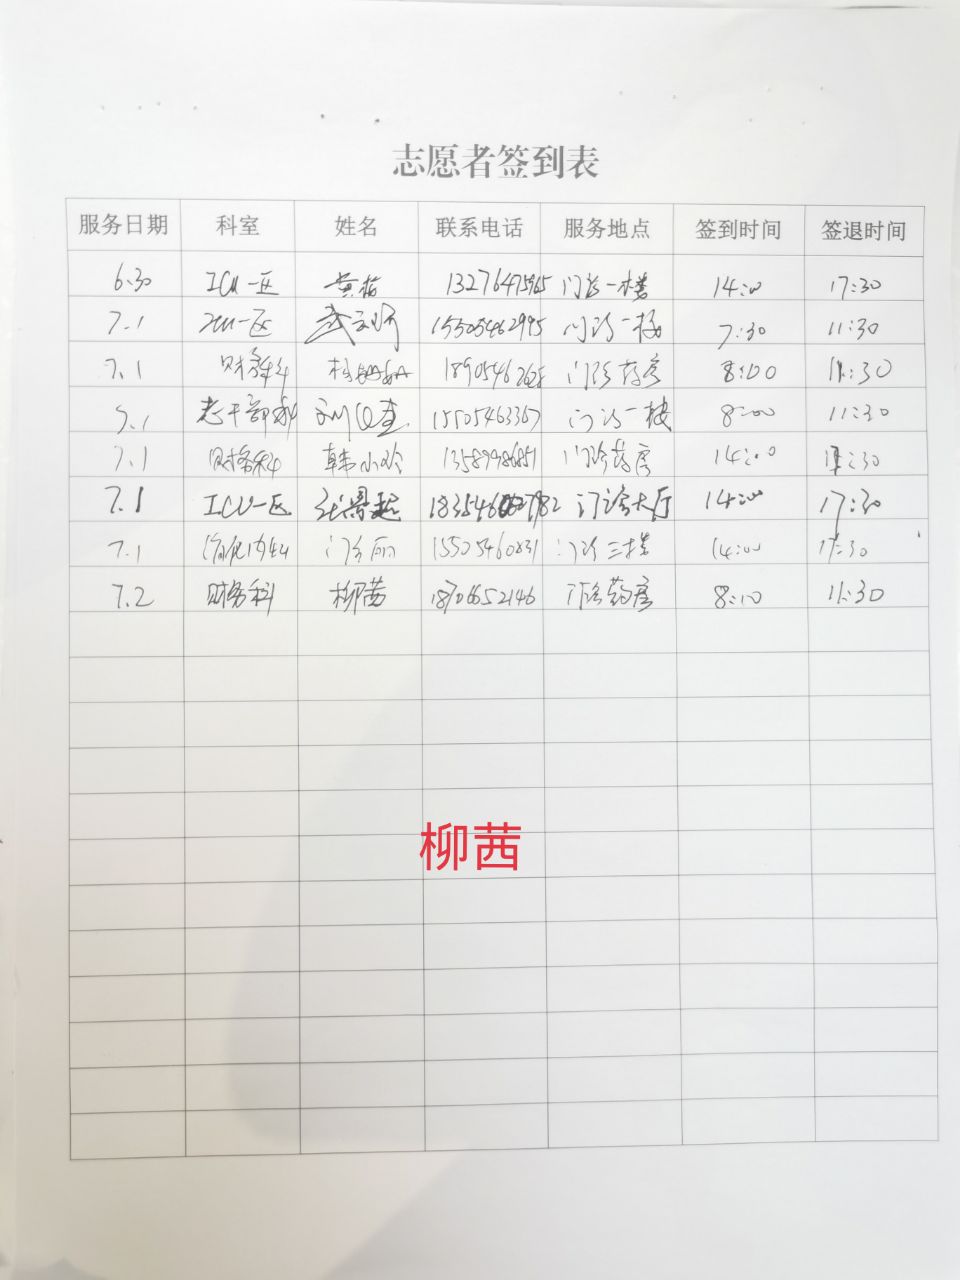 志愿者签到表
服务日期 科室 姓名 联系电话 服务地点 签到时间 签退时间
6.30 ICU一区 黄 13276475965 门诊一楼 14:00 17:30
7.1 ICU一区 15505462995 门诊一楼 7:30 11:30
7.1 财务科 门诊药房 8:00 11:30
7.1 老干部科 15505463367 门诊一楼 8:00 11:30
7.1 财务科 韩小玲 13589986851 门诊药房 14:00 17:30
7.1 ICU一区 门诊大厅 14:00 17:30
7.1 消化内科 15505460831 门诊三楼 14:00 17:30
7.2 财务科 柳茜 18706652146 门诊药房 8:00 11:30
柳茜